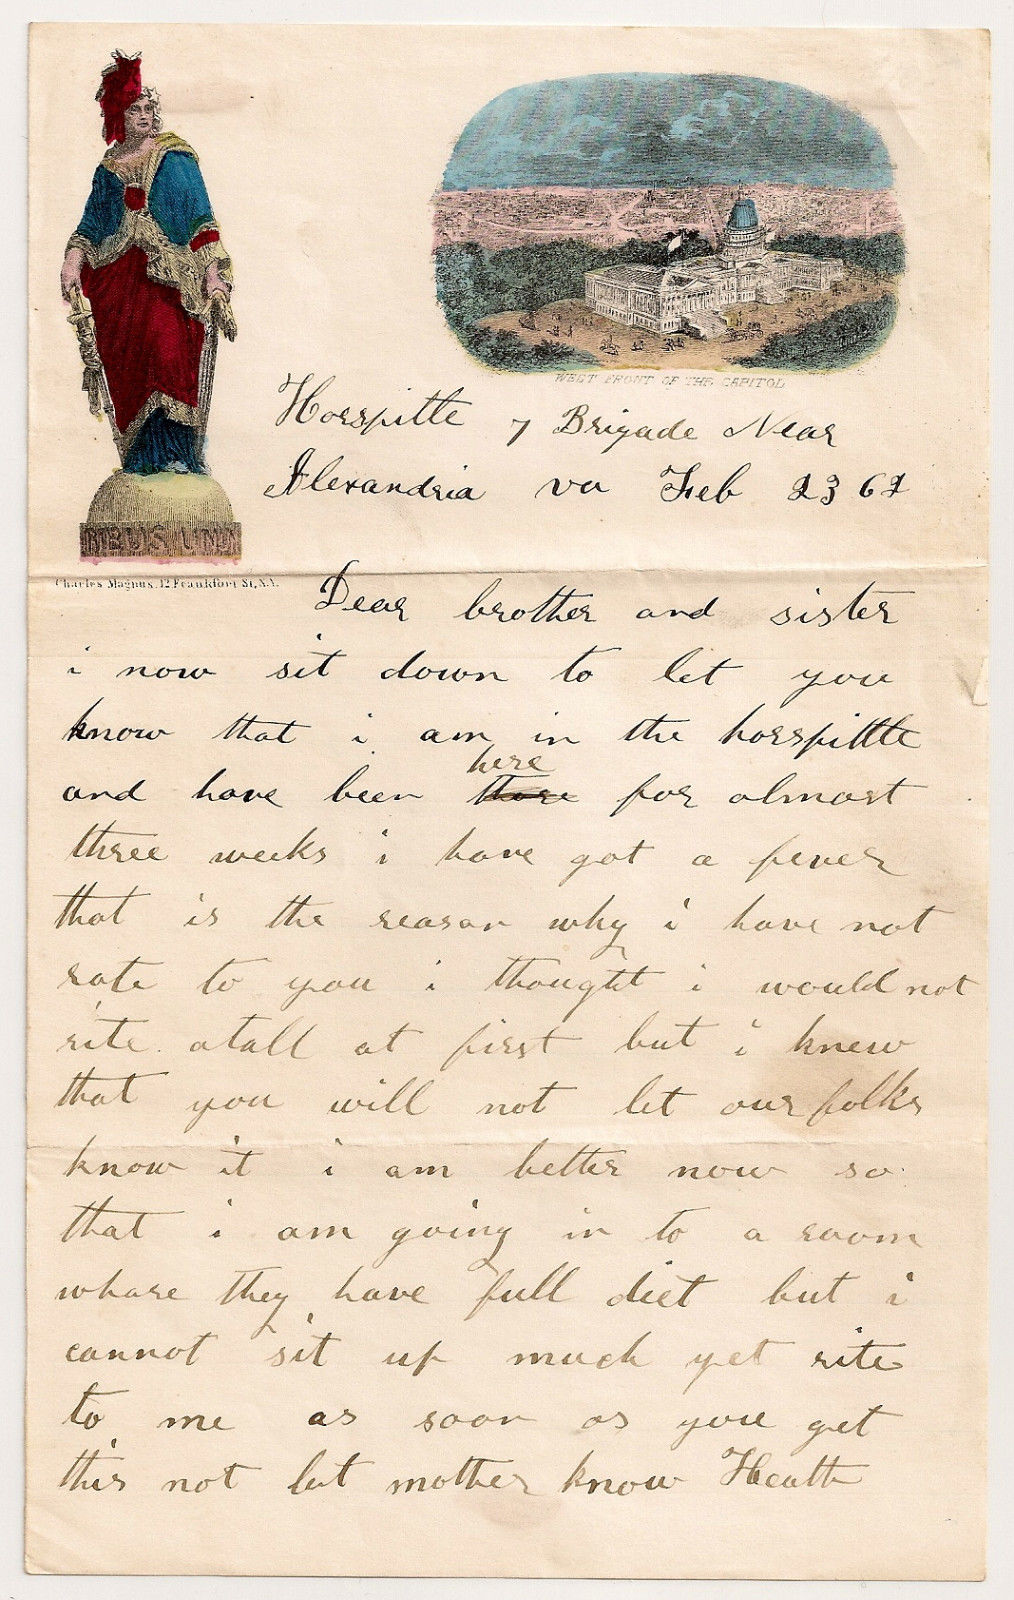 WEST FRONT OF THE CAPITOL
Horspitle 7 Brigade Near
Alexandria va Feb 23 62
Charles Magnus, 12 Frankfort St, N.Y.
Dear brother and sister
i now sit down to let you
know that i am in the horspittle
here
and have been there for almost
three weeks i have got a fever
that is the reason why i have not
rote to you i thought i would not
rite atall at first but i knew
that you will not let our folks
know it i am better now so
that i am going in to a room
whare they have full diet but i
cannot sit up much yet rite
to me as soon as you get
this not let mother know Heath